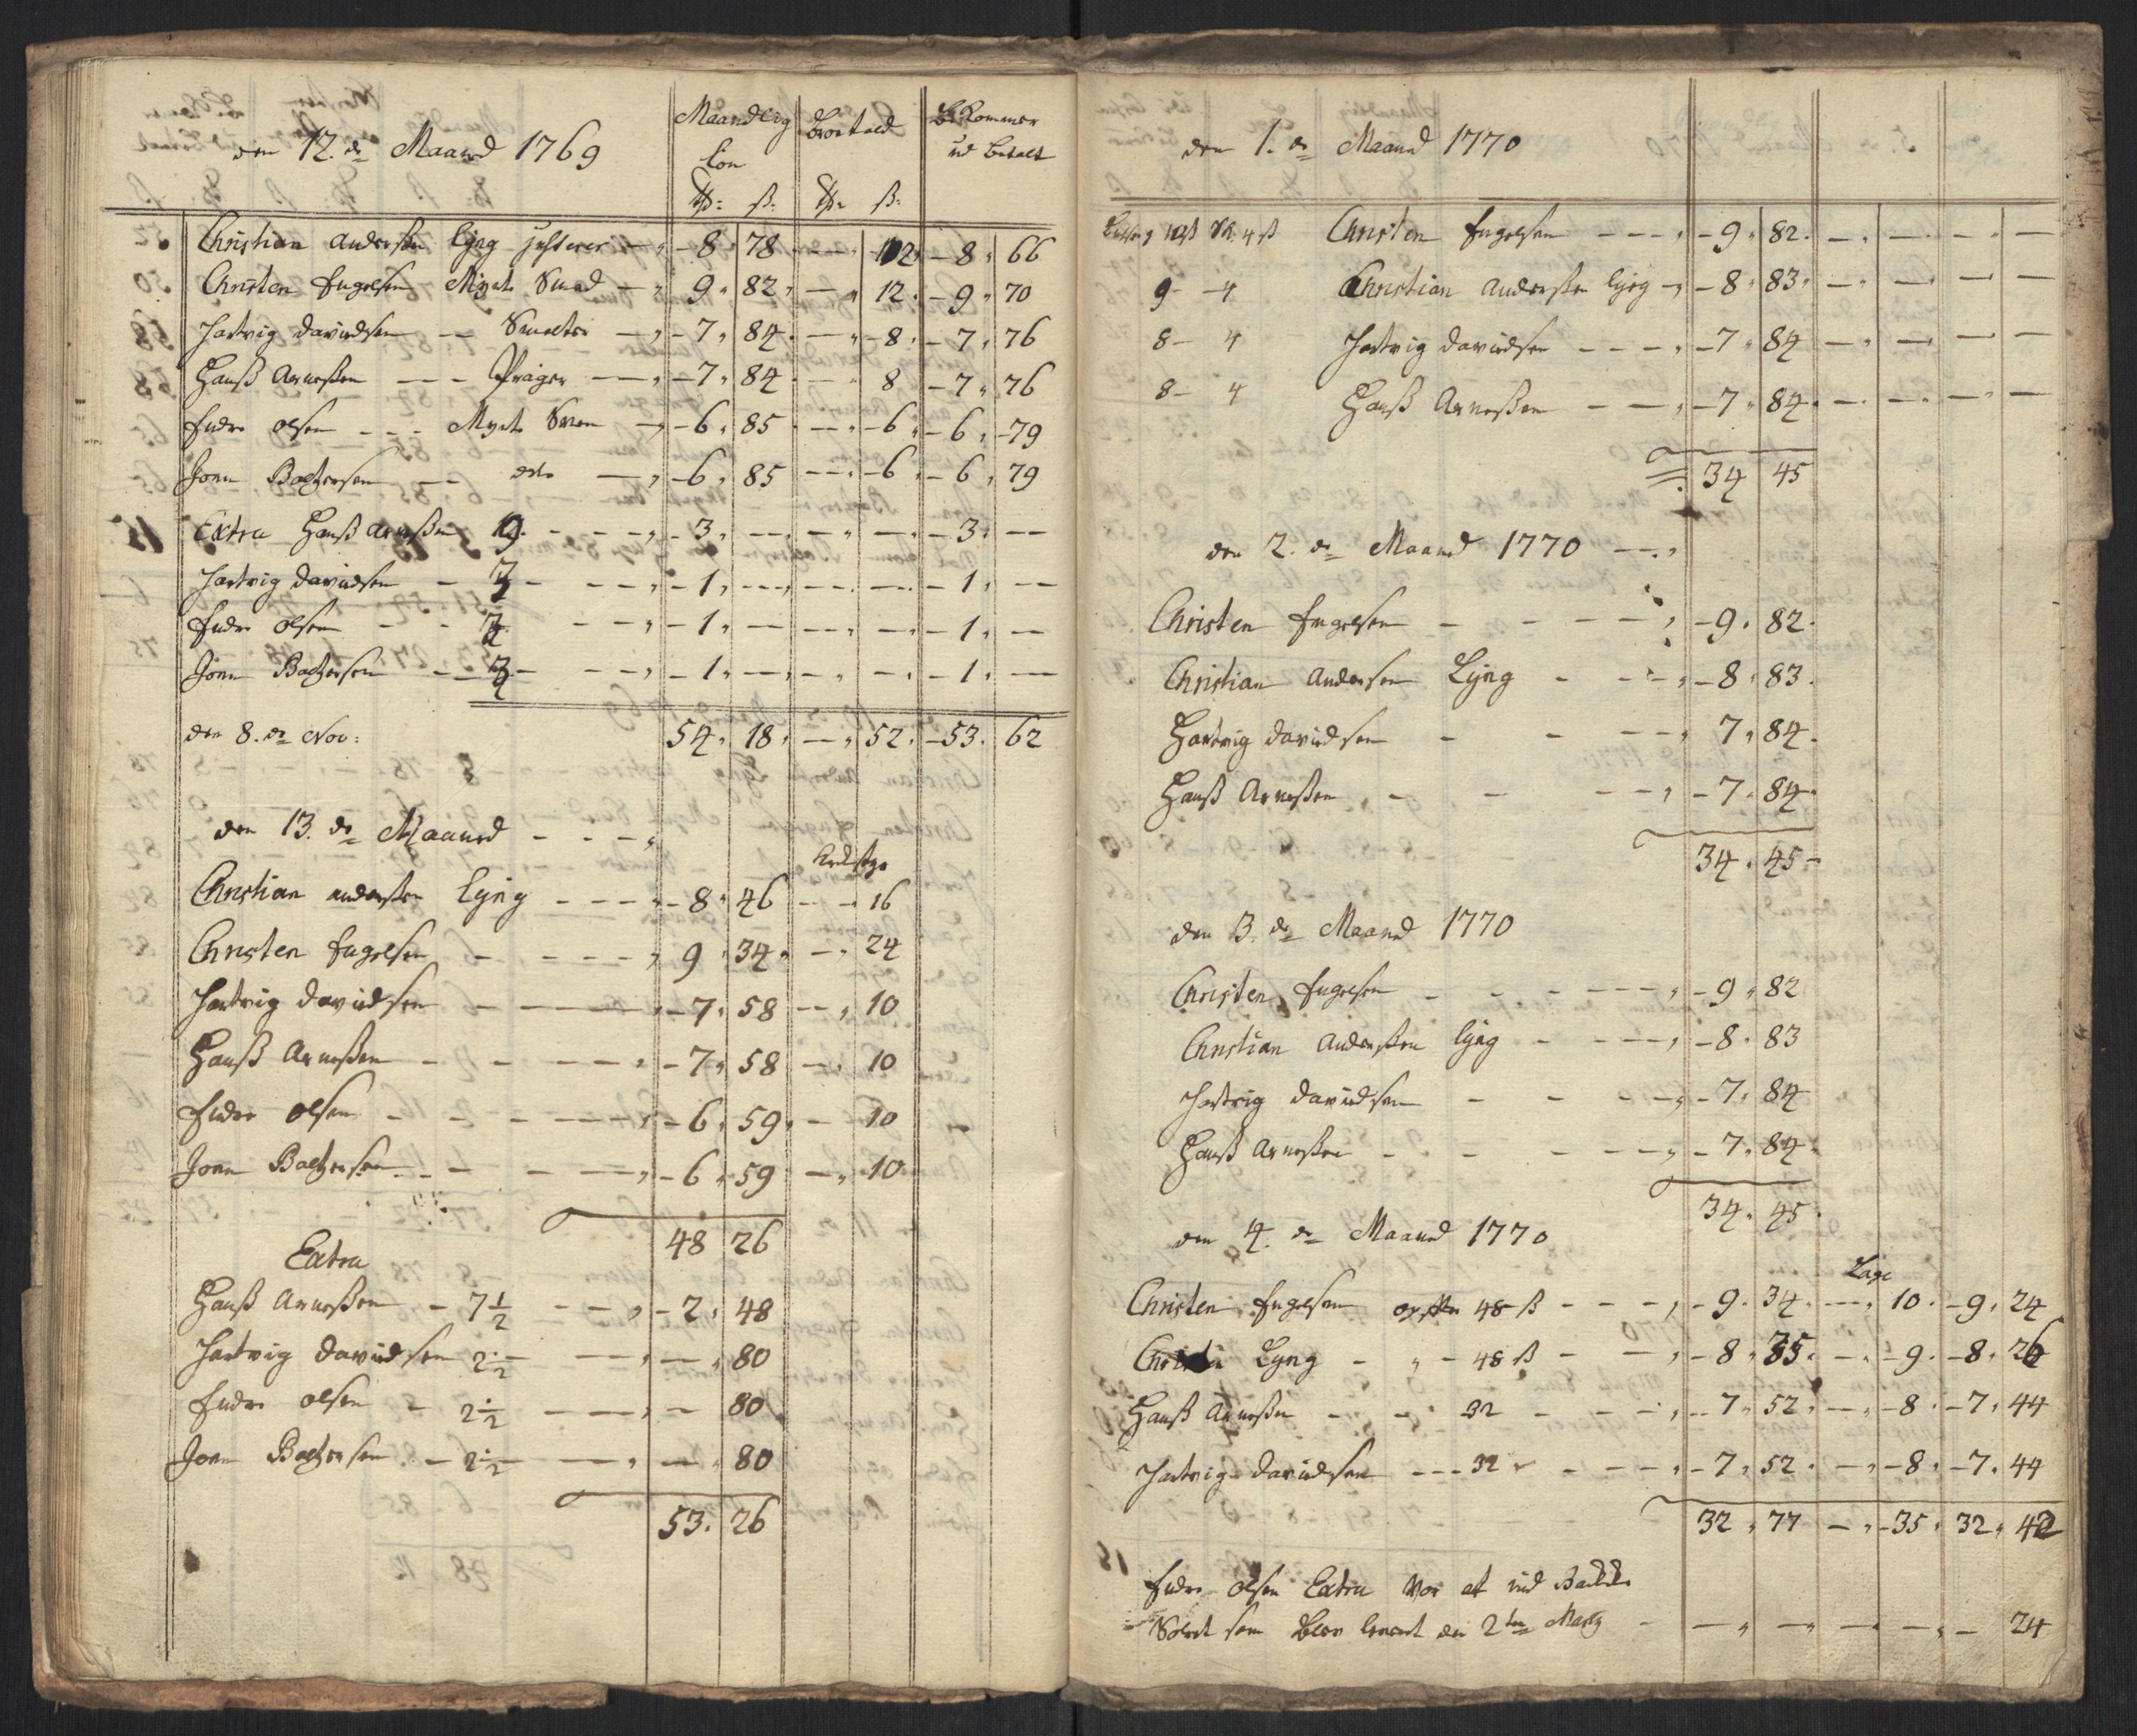 den 12. de Maaned 1769 Maandlig Lon Bortald Bekommer ud betalt
Rd: ß: Rd: ß:
Christian Anderßen Lÿng Justerer 8 78 12 8 66
Christen Engelsen Mÿnt Smed 9 82 12 9 70
Hartvig Davidsen Smelter 7 84 8 7 76
Hanß Arneßen Präger 7 84 8 7 76
Endre Olsen Mynt Sven 6 85 6 6 79
Jonn Baltzersen dito 6 85 6 6 79
Extra Hanß Arneßen 9 3 3
Hartvig Davidsen 3 1 1
Endre Olsen 3 1 1
Jonn Baltzersen 3 1 1
den 8. de Nov: 54 18 52 53 62
den 13. de Maaned
Christian Anderßen Lÿng 8 46 16
Christen Engelsen 9 34 24
Hartvig Davidsen 7 58 10
Hanß Arneßen 7 58 10
Endre Olsen 6 59 10
Jonn Baltzersen 6 59 10
48 26
Extra
Hanß Arneßen 7 1/2 2 48
Hartvig Davidsen 2 1/2 80
Endre Olsen 2 1/2 80
Jonn Baltzersen 2 1/2 80
53 26
den 1. de Maaned 1770
10ß 4ß Christen Engelsen 9 82
9 4 Christian Anderßen Lÿng 8 83
8 4 Hartvig Davidsen 7 84
8 4 Hanß Arneßen 7 84
34 45
den 2. de Maaned 1770
Christen Engelsen 9 82
Christian Andersen Lÿng 8 83
Hartvig Davidsen 7 84
Hanß Arneßen 7 84
34 45
den 3. de Maaned 1770
Christen Engelsen 9 82
Christian Anderßen Lÿng 8 83
Hartvig Davidsen 7 84
Hanß Arneßen 7 84
34 45
den 4. de Maaned 1770
Christen Engelsen 48 ß 9 34 10 9 24
Lyng 48 ß 8 35 9 8 26
Hanß Arneßen 32 7 52 8 7 44
Hartvig Davidsen 32 7 52 8 7 44
32 77 35 32 42
Endre Olsen Extra vor at
Sølvet som blev den 2ten Martz 24